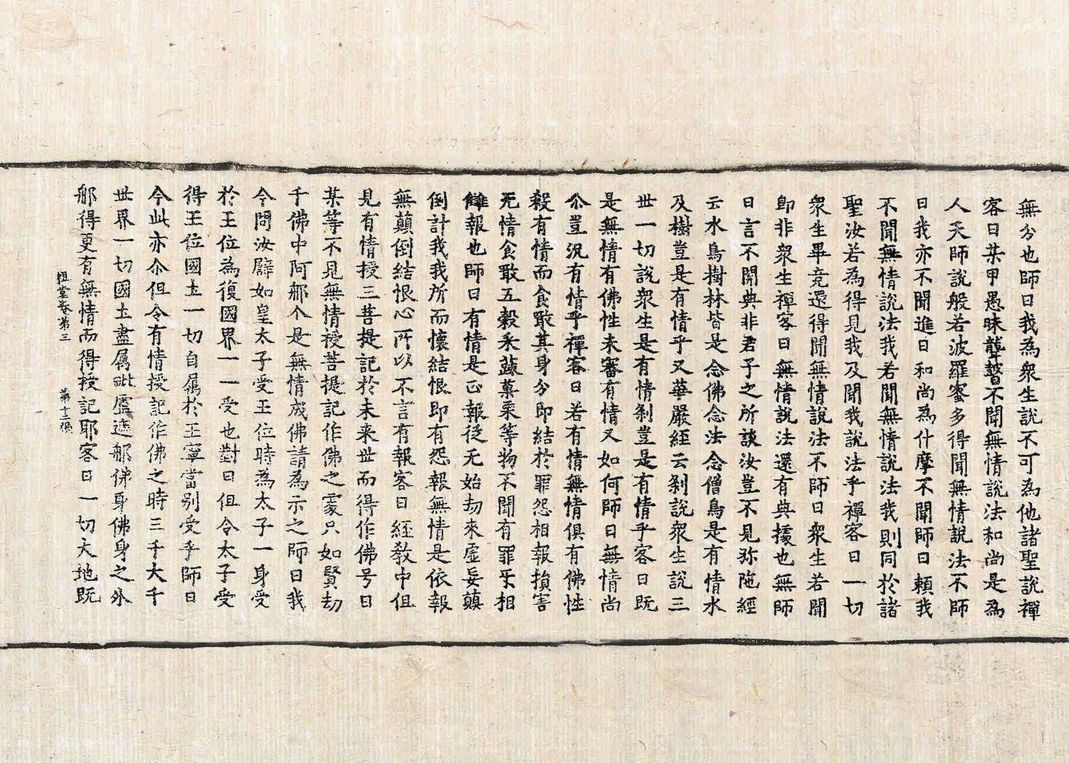 無分也師曰我為衆生說不可為他諸聖說禪
客曰某甲愚昧聾瞽不聞無情說法和尚是為
人天師說般若波羅蜜多得聞無情說法不師
曰我亦不聞進曰和尚為什摩不聞師曰賴我
不聞無情說法我若聞無情說法我則同於諸
聖汝若為得見我及聞我說法乎禪客曰一切
衆生畢竟還得聞無情說法不師曰衆生若聞
即非衆生禪客曰無情說法還有典據也無師
曰言不開典非君子之所談汝豈不見弥陁經
云水鳥樹林皆是念佛念法念僧鳥是有情水
及樹豈是有情乎又華嚴經云刹說衆生說三
世一切說衆生是有情刹豈是有情乎客曰既
是無情有佛性未審有情又如何師曰無情尚
尒豈況有情乎禪客曰若有情無情俱有佛性
殺有情而食噉其身分即結於罪怨相報損害
无情食噉五穀禾蔬菓栗等物不聞有罪牙相
讎報也師曰有情是正報從无始劫來虛妄顛
倒計我我所而懷結恨即有怨報無情是依報
無顛倒結恨心所以不言有報客曰經教中但
見有情授三菩提記於未来世而得作佛号曰
某等不見無情授菩提記作佛之處只如賢劫
千佛中阿那个是無情成佛請為示之師曰我
今問汝譬如皇太子受王位時為太子一身受
於王位為復國界一一受也對曰但令太子受
得王位國土一切自属於王寧當別受乎師曰
今此亦尒但令有情授記作佛之時三千大千
世界一切國土盡属毗盧遮那佛身佛身之外
那得更有無情而得授記耶客曰一切大地既
祖堂卷第三 第十三張